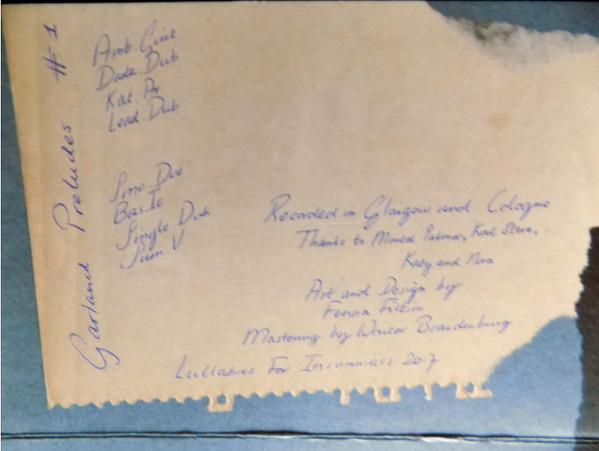 Garland Preludes #1
Amb. Guit
Dada. Dub
Kal. Ar
Lead. Dub
Bas.Ic
Single Dub
Sum. V
Recorded in Glasgow and Cologne
Thanks to
Katy and Nora
Art and Design by
Fenna Fiction
Mastering by Wouter Brandenburg
Lullabies For Insomniacs 2017